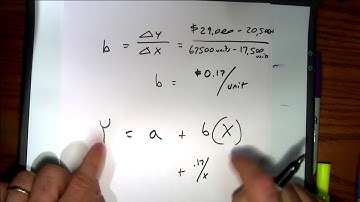 b = ΔY / ΔX = $29,000 - 20,500 / 67500 units - 17,500 units
b = $0.17/unit
Y = a + b(X)
+ .17/x